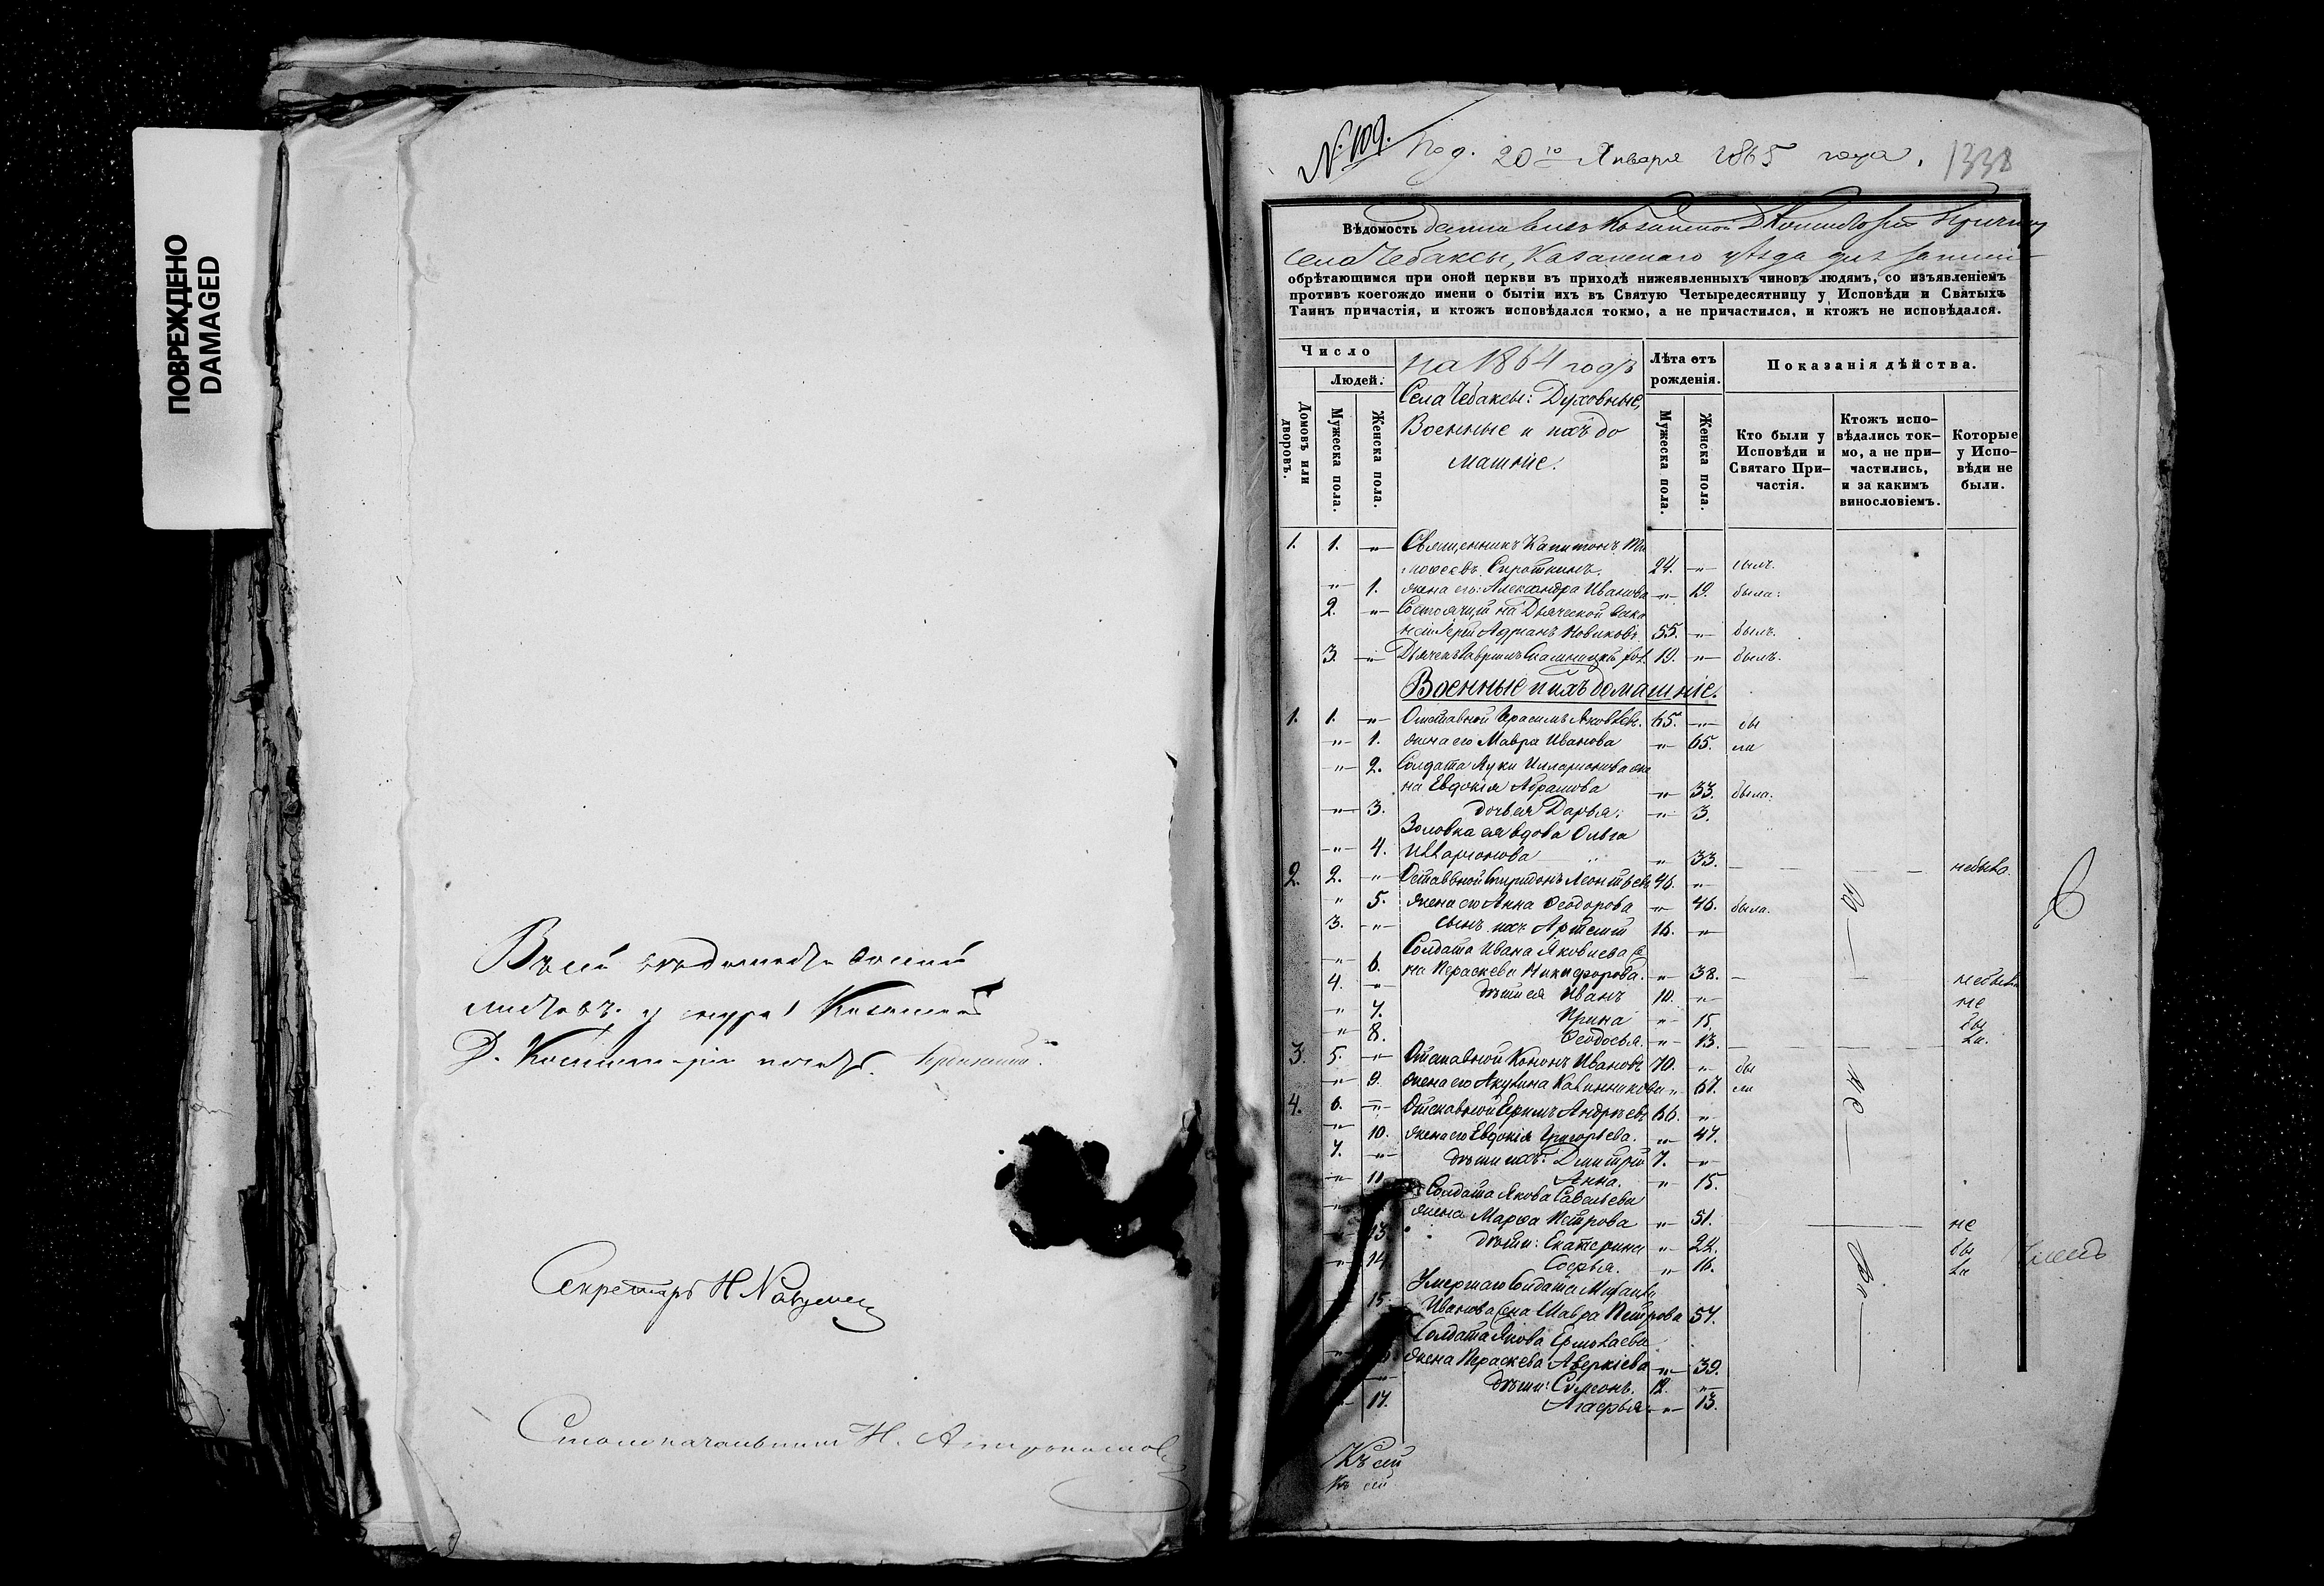 ПОВРЕЖДЕНО
DAMAGED
Въ сей
листовъ. у сего
Д. Консисторіи печать.
Секретарь Н
Столоначальникъ Н.
№ 109. Под. 20го Января 1865 года. 1338
Вѣдомость Казанской Д Консисторіи Причту
села Чебаксы, Казанскаго уѣзда для записи
обрѣтающимся при оной церкви въ приходѣ нижеявленныхъ чиновъ людямъ, со изъявленіемъ
противъ коегождо имени о бытіи ихъ въ Святую Четыредесятницу у Исповѣди и Святыхъ
Таинъ причастія, и ктожъ исповѣдался токмо, а не причастился, и ктожъ не исповѣдался.
Число
Людей.
Домовъ или дворовъ.
Мужеска пола.
Женска пола.
на 1864 годъ
Села Чебаксы: Духовные,
Военные и ихъ до
машніе.
Лѣта отъ рожденія.
Мужеска пола.
Женска пола.
Показанія дѣйства.
Кто были у Исповѣди и Святаго При-частія.
Ктожъ испо-вѣдались ток-мо, а не при-частились, и за какимъ винословіемъ.
Которые у Испо-вѣди не были.
1. 1. -"- Священникъ Капитонъ Ти
моѳеевъ Сироткинъ. 24. -"- былъ.
-"- 1. жена его: Александра Иванова -"- 19. была:
2. -"- Состоящій на Дьяческой вака
нсіи Іерей Адріанъ Новиковъ. 55. -"- былъ.
3. -"- Дьячекъ Гавріилъ 19. -"- былъ.
Военные и ихъ домашніе.
1. 1. -"- Отставной Герасимъ Яковлевъ. 65. -"- бы
-"- 1. жена его Мавра Иванова -"- 65. ли
-"- 2. Солдата Луки Илларионова же
на Евдокія Абрамова -"- 33. была:
-"- 3. дочь ея Дарья: -"- 3.
Золовка ея вдова Ольга
-"- 4. Илларионова -"- 33. небыла
2. 2. " Отставной Спиридонъ Леонтьевъ 46. -"-
" 5. жена его Анна Ѳеодорова -"- 46. была.
3. -"- сынъ ихъ Артемій 16. -"-
Солдата Ивана Яковлева же
-"- 6. на Параскева Никифорова. -"- 38. небыла
4. -"- дѣти ея Иванъ 10. -"- не
" 7. Ирина -"- 15. бы
-"- 8. Ѳеодосья. -"- 13. ли.
3. 5. -"- Отставной Кононъ Ивановъ 70. -"- бы
-"- 9. жена его Акулина Калинникова -"- 67. ли
4. 6. -"- Отставной Ефимъ Андреевъ 66. -"-
-"- 10. жена его Евдокія Григорьева. -"- 47.
7. -"- дѣти ихъ: Дмитрій 7. -"-
-"- 11 Анна. -"- 15.
Солдата Якова Савельева
-"- жена Марѳа Петрова -"- 51. не
-"- 13 дѣти: Екатерина -"- 22. бы
-"- 14 Софья. -"- 16. ли
Умершаго Солдата
15. Иванова жена Мавра Петрова 57.
Солдата Якова Ермолаева
-"- жена Параскева Аверкіева -"- 39.
-"- дѣти: Симеонъ. 12. -"-
-"- 17. Агафья -"- 13.
Къ сей
Къ сей